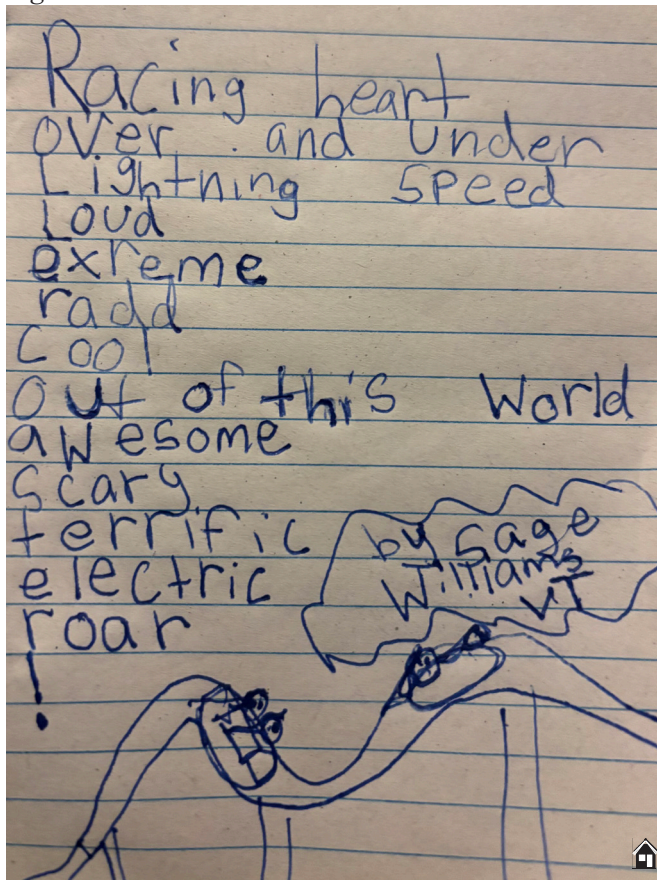 Racing heart
over and under
Lightning speed
Loud
exreme
radd
cool
out of this World
awesome
scary
terrific
electric
roar
!
by Sage
Williams
VT